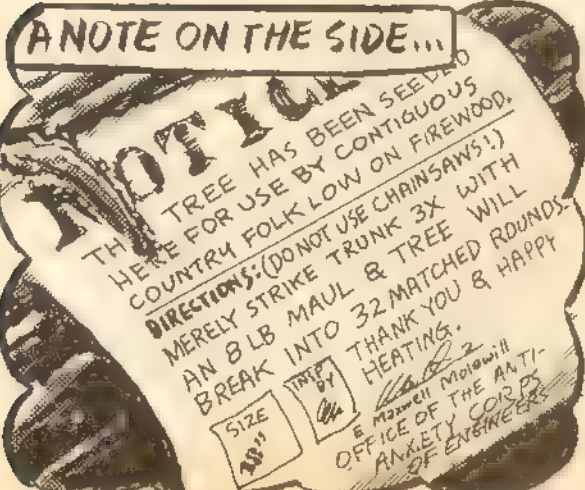 A NOTE ON THE SIDE...
NOTICE
THIS TREE HAS BEEN SEEDED
HERE FOR USE BY CONTIGUOUS
COUNTRY FOLK LOW ON FIREWOOD.
DIRECTIONS: (DO NOT USE CHAINSAWS!)
MERELY STRIKE TRUNK 3X WITH
AN 8 LB MAUL & TREE WILL
BREAK INTO 32 MATCHED ROUNDS.
THANK YOU & HAPPY
HEATING.
SIZE
INSP
BY
E Maxwell Molowill
OFFICE OF THE ANTI-
ANXIETY CORPS
OF ENGINEERS